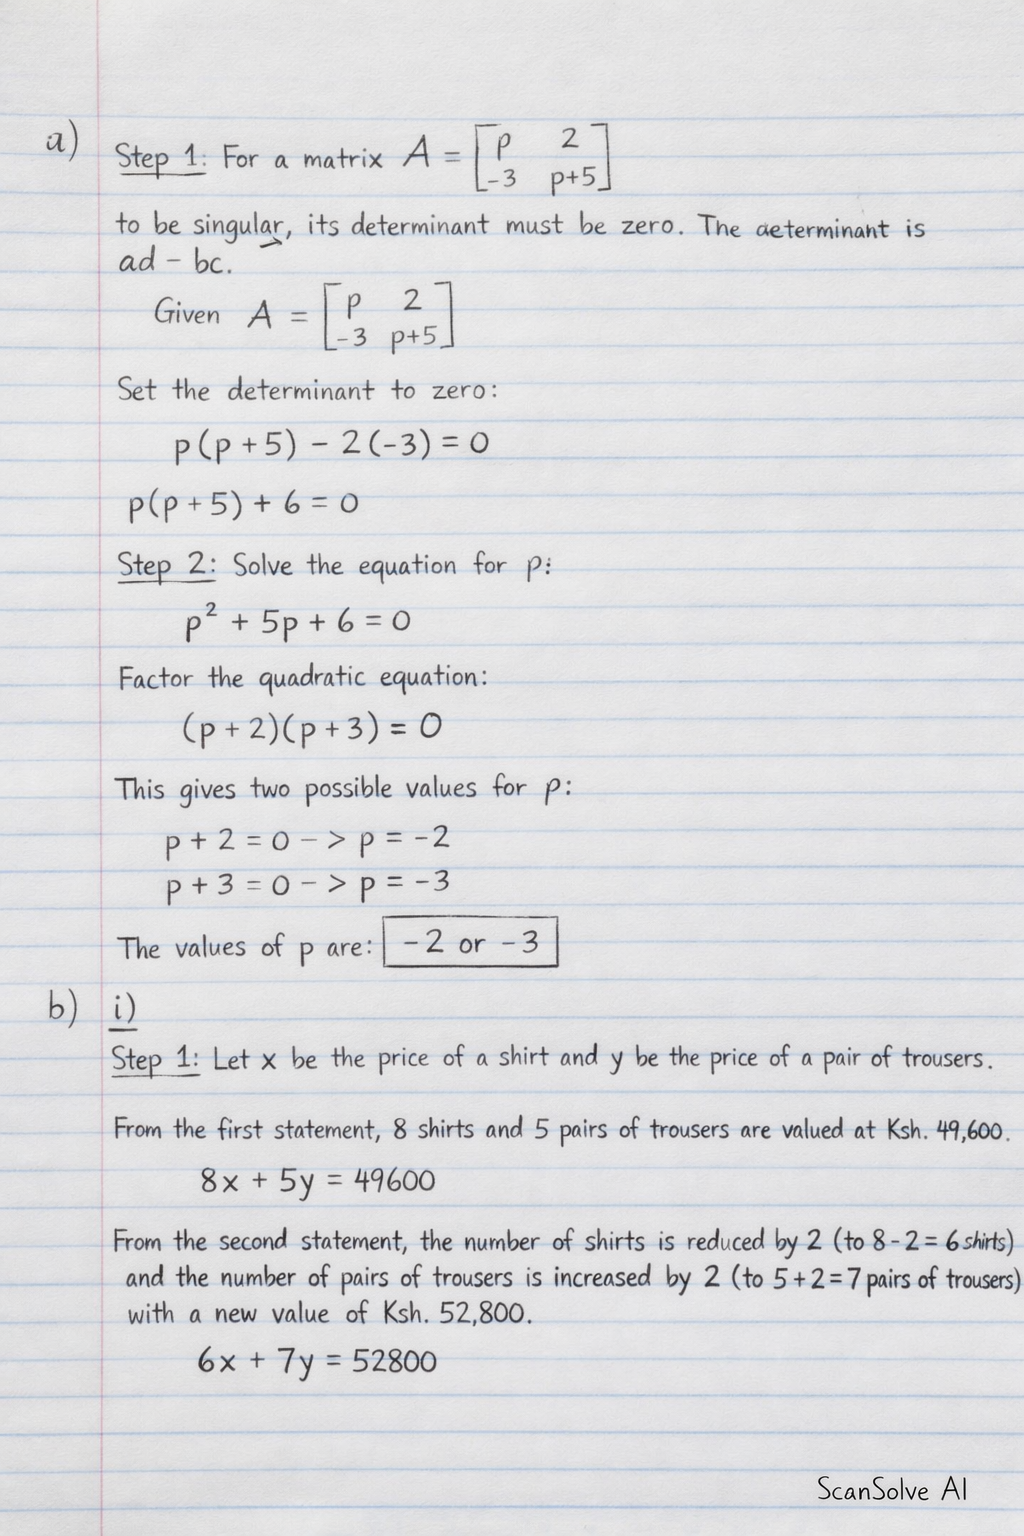 a) Step 1: For a matrix A = [p 2
-3 p+5]
to be singular, its determinant must be zero. The aeterminant is
ad - bc.
Given A = [p 2
-3 p+5]
Set the determinant to zero:
p(p + 5) - 2(-3) = 0
p(p + 5) + 6 = 0
Step 2: Solve the equation for p:
p² + 5p + 6 = 0
Factor the quadratic equation:
(p + 2)(p + 3) = 0
This gives two possible values for p:
p + 2 = 0 - > p = -2
p + 3 = 0 - > p = -3
The values of p are: -2 or -3
b) i)
Step 1: Let x be the price of a shirt and y be the price of a pair of trousers.
From the first statement, 8 shirts and 5 pairs of trousers are valued at Ksh. 49,600.
8x + 5y = 49600
From the second statement, the number of shirts is reduced by 2 (to 8 - 2 = 6 shirts)
and the number of pairs of trousers is increased by 2 (to 5 + 2 = 7 pairs of trousers)
with a new value of Ksh. 52,800.
6x + 7y = 52800
ScanSolve AI